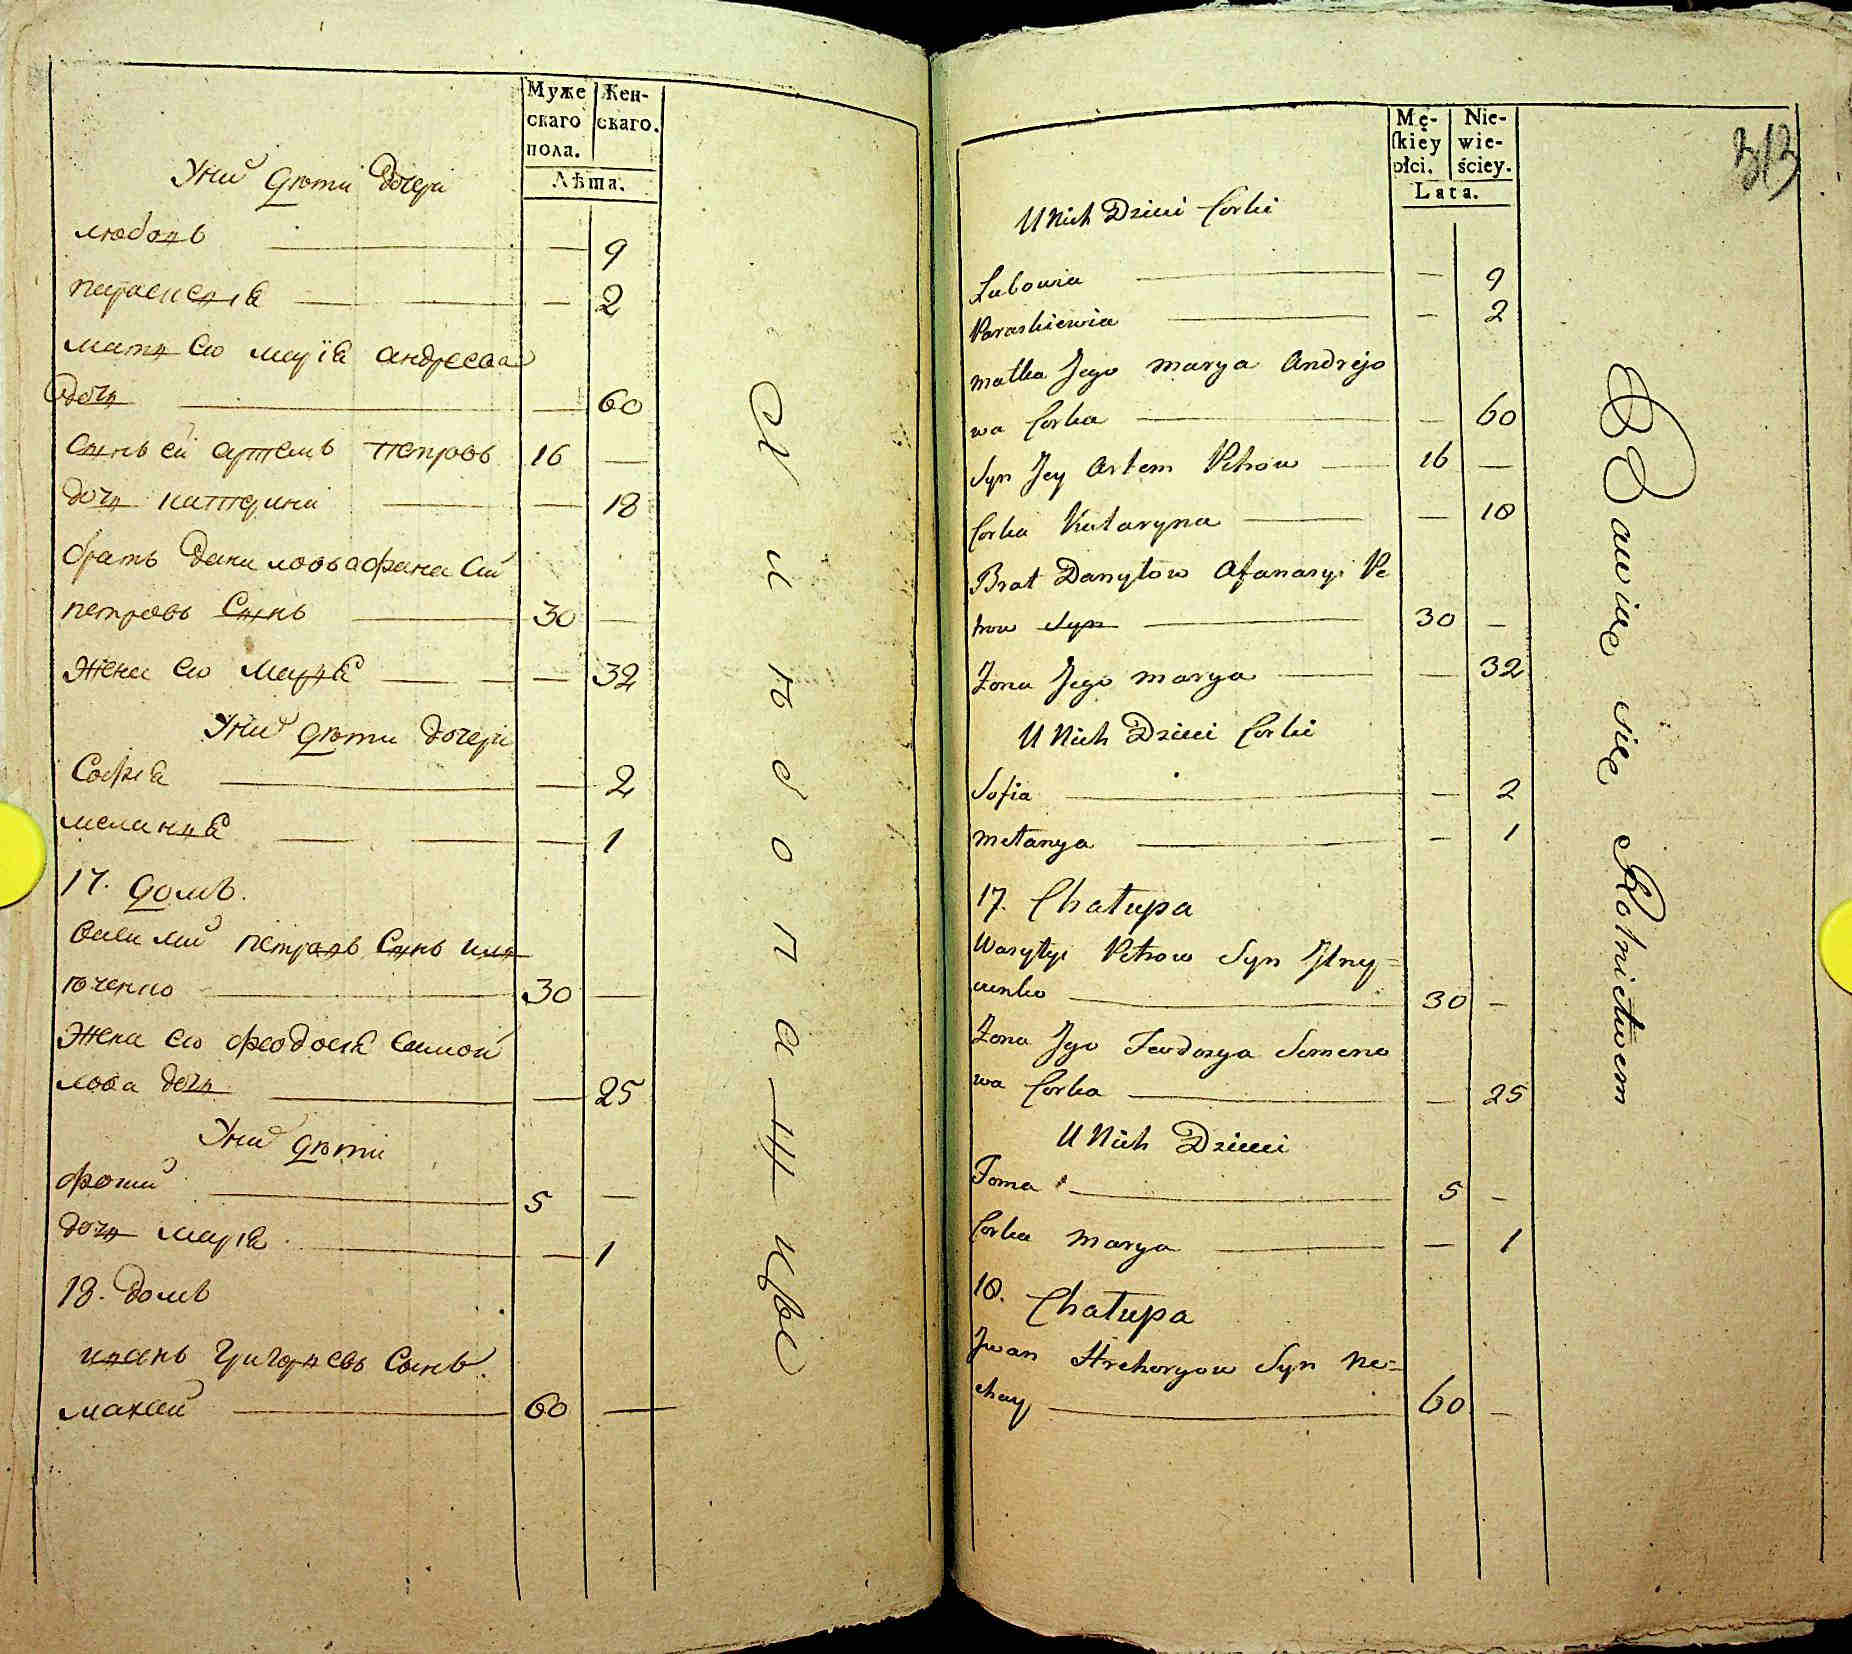 Муже
скаго
пола.
Жен-
скаго.
Лѣта.
У них дѣти дочери
любовь — 9
параскевиа — 2
мать его мариа андреева
дочь — 60
Сынъ ей артемъ петровъ 16 —
дочь катерина — 18
братъ Даниловъ афанасий
петровъ Сынъ 30 —
жена его Мариа — 32
У них дѣти дочери
Софиа — 2
меланиа — 1
17. домъ.
василий петровъ Сынъ
ченко 30 —
жена его феодосиа самой
лова дочь — 25
У них дѣти
5 —
дочь мариа — 1
18. домъ
иванъ григориевъ Сынъ
60 —
Mę-
ſkiey
płci.
Nie-
wie-
ściey.
Lata.
313
U Nich Dzieci Corki
Łubowia — 9
Paraskiewia — 2
matka Jego marya Andrejo
wa Corka — 60
Syn Jey Artem Petrow 16 —
Corka Kataryna — 18
Brat Danyłow Afanasyi Pe
trow Syn 30 —
Zona Jego marya — 32
U Nich Dzieci Corki
Sofia — 2
mełanya — 1
17. Chałupa
Wasyłyi Petrow Syn
czenko 30 —
Zona Jego Feodosya Semeno
wa Corka — 25
U Nich Dzieci
Foma 5 —
Corka marya — 1
18. Chałupa
Jwan Hrehoryow Syn Ne-
chay 60 —
Bawiąc się Rolnictwem